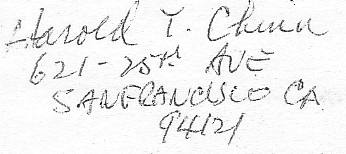 Harold T. Chinn
621-25th AVE
SANFRANCISCO CA
94121